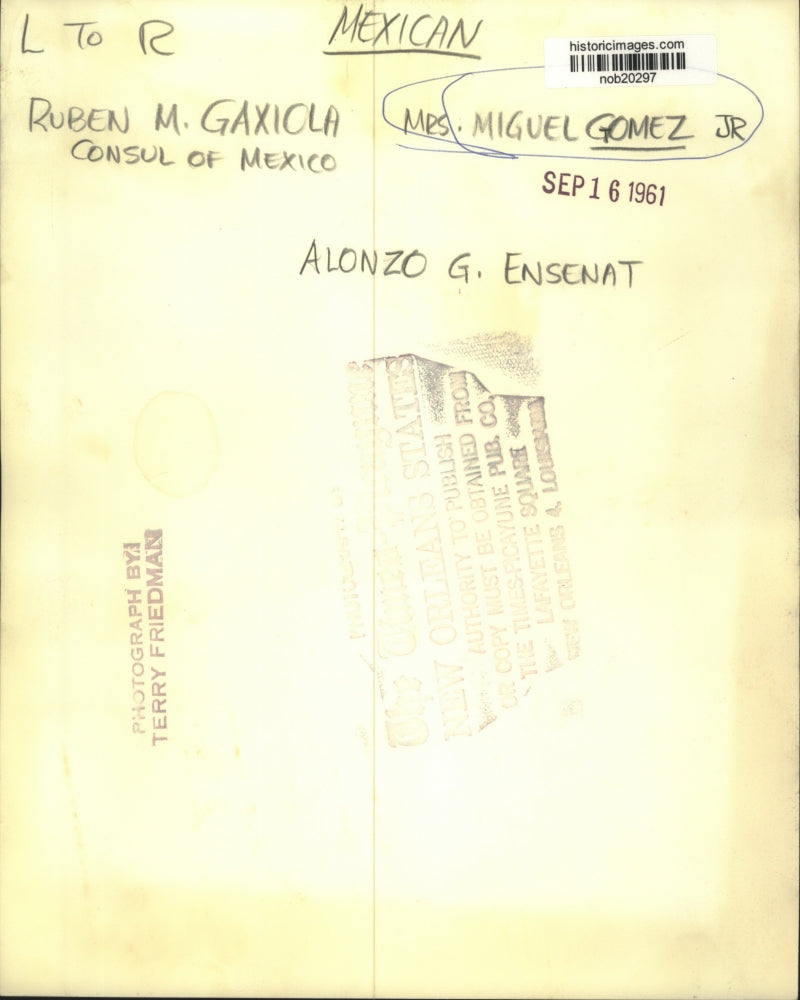 L TO R
MEXICAN
historicimages.com
nob20297
RUBEN M. GAXIOLA
CONSUL OF MEXICO
MRS. MIGUEL GOMEZ JR
SEP 16 1961
ALONZO G. ENSENAT
PHOTOGRAPH BY:
TERRY FRIEDMAN
The
NEW ORLEANS STATES
AUTHORITY TO PUBLISH
OR COPY MUST BE OBTAINED FROM
THE TIMES-PICAYUNE PUB. CO.
LAFAYETTE SQUARE
NEW ORLEANS 4, LOUISIANA